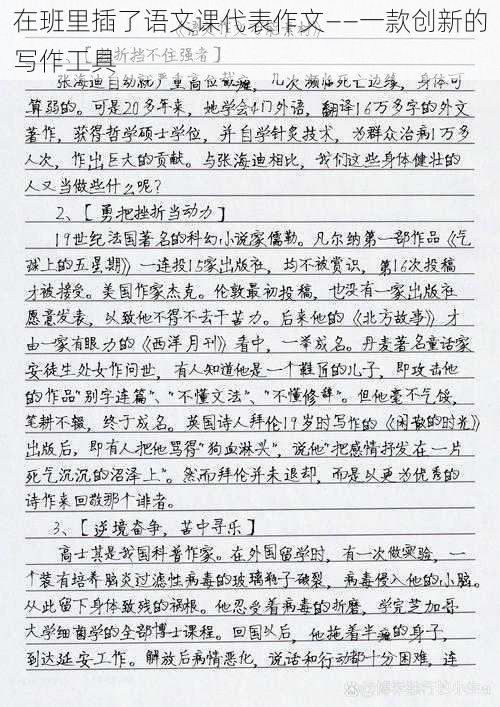 在班里插了语文课代表作文——一款创新的
写作工具
折挡不住强者】
张海迪自幼就严重高位截瘫，几次濒临死亡边缘，身体可
算弱的。可是20多年来，她学会4门外语，翻译16万多字的外文
著作，获得哲学硕士学位，并自学针灸技术，为群众治病1万多
人次，作出巨大的贡献。与张海迪相比，我们这些身体健壮的
人又当做些什么呢？
2、【勇把挫折当动力】
19世纪法国著名的科幻小说家儒勒。凡尔纳第一部作品《气
球上的五星期》一连投15家出版社，均不被赏识，第16次投稿
才被接受。美国作家杰克。伦敦最初投稿，也没有一家出版社
愿意发表，以致他不得不去干苦力。后来他的《北方故事》才
由一家有眼力的《西洋月刊》看中，一举成名。丹麦著名童话家
安徒生处女作问世，有人知道他是一个鞋匠的儿子，即攻击他
的作品"别字连篇"、"不懂文法"、"不懂修辞"。但他毫不气馁，
笔耕不辍，终于成名。英国诗人拜伦19岁时写作的《闲散的时光》
出版后，即有人把他骂得"狗血淋头"，说他"把感情抒发在一片
死气沉沉的沼泽上"。然而拜伦并未退却，而是以更为优秀的
诗作来回敬那个诽者。
3、【逆境奋争，苦中寻乐】
高士其是我国科普作家。在外国留学时，有一次做实验，一
个装有培养脑炎过滤性病毒的玻璃瓶子破裂，病毒侵入他的小脑。
从此留下身体致残的祸根。他忍受着病毒的折磨，学完芝加哥
大学细菌学的全部博士课程。回国以后，他拖着半瘫的身子，
到达延安工作。解放后病情恶化，说话和行动都十分困难，连